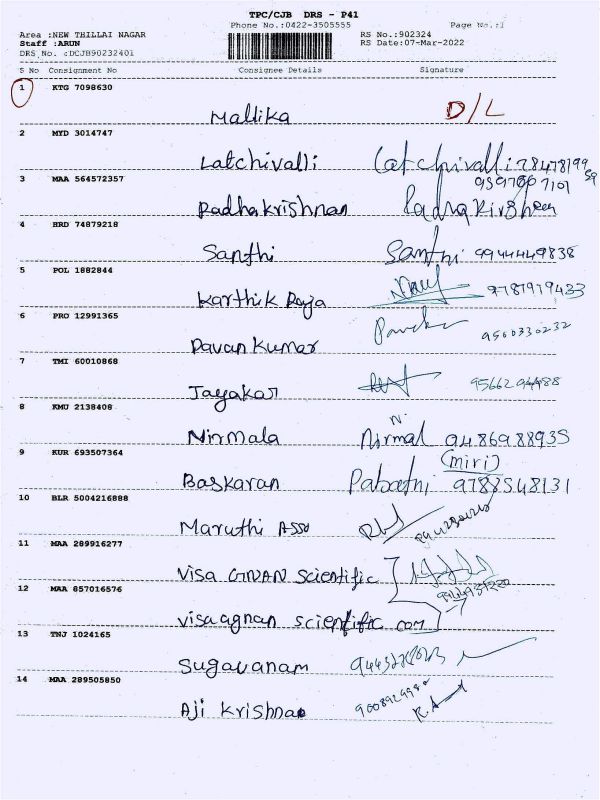 TPC/CJB DRS - P41
Phone No.:0422-3505555 Page No.:1
Area :NEW THILLAI NAGAR RS No.:902324
Staff :ARUN RS Date:07-Mar-2022
DRS No. :DCJB90232401
S No Consignment No Consignee Details Signature
1 KTG 7098630
Mallika D/L
2 MYD 3014747
Latchivalli Latchivalli
3 MAA 564572357
Radhakrishnan
4 HRD 74879218
Santhi Santhi 9944449838
5 POL 1882844
Karthik Raja 9787979433
6 PRO 12991365
Pavan Kumar 9500330232
7 TMI 60010868
Jayakar
8 KMU 2138408
Nirmala Nirmal N. 9486988935
9 KUR 693507364
(miri)
Baskaran Pabathi 9788548131
10 BLR 5004216888
Maruthi Asso
11 MAA 289916277
Visa GNAN Scientific
12 MAA 857016576
visaagnan scientific com
13 TNJ 1024165
Sugavanam
14 MAA 289505850
Aji Krishna